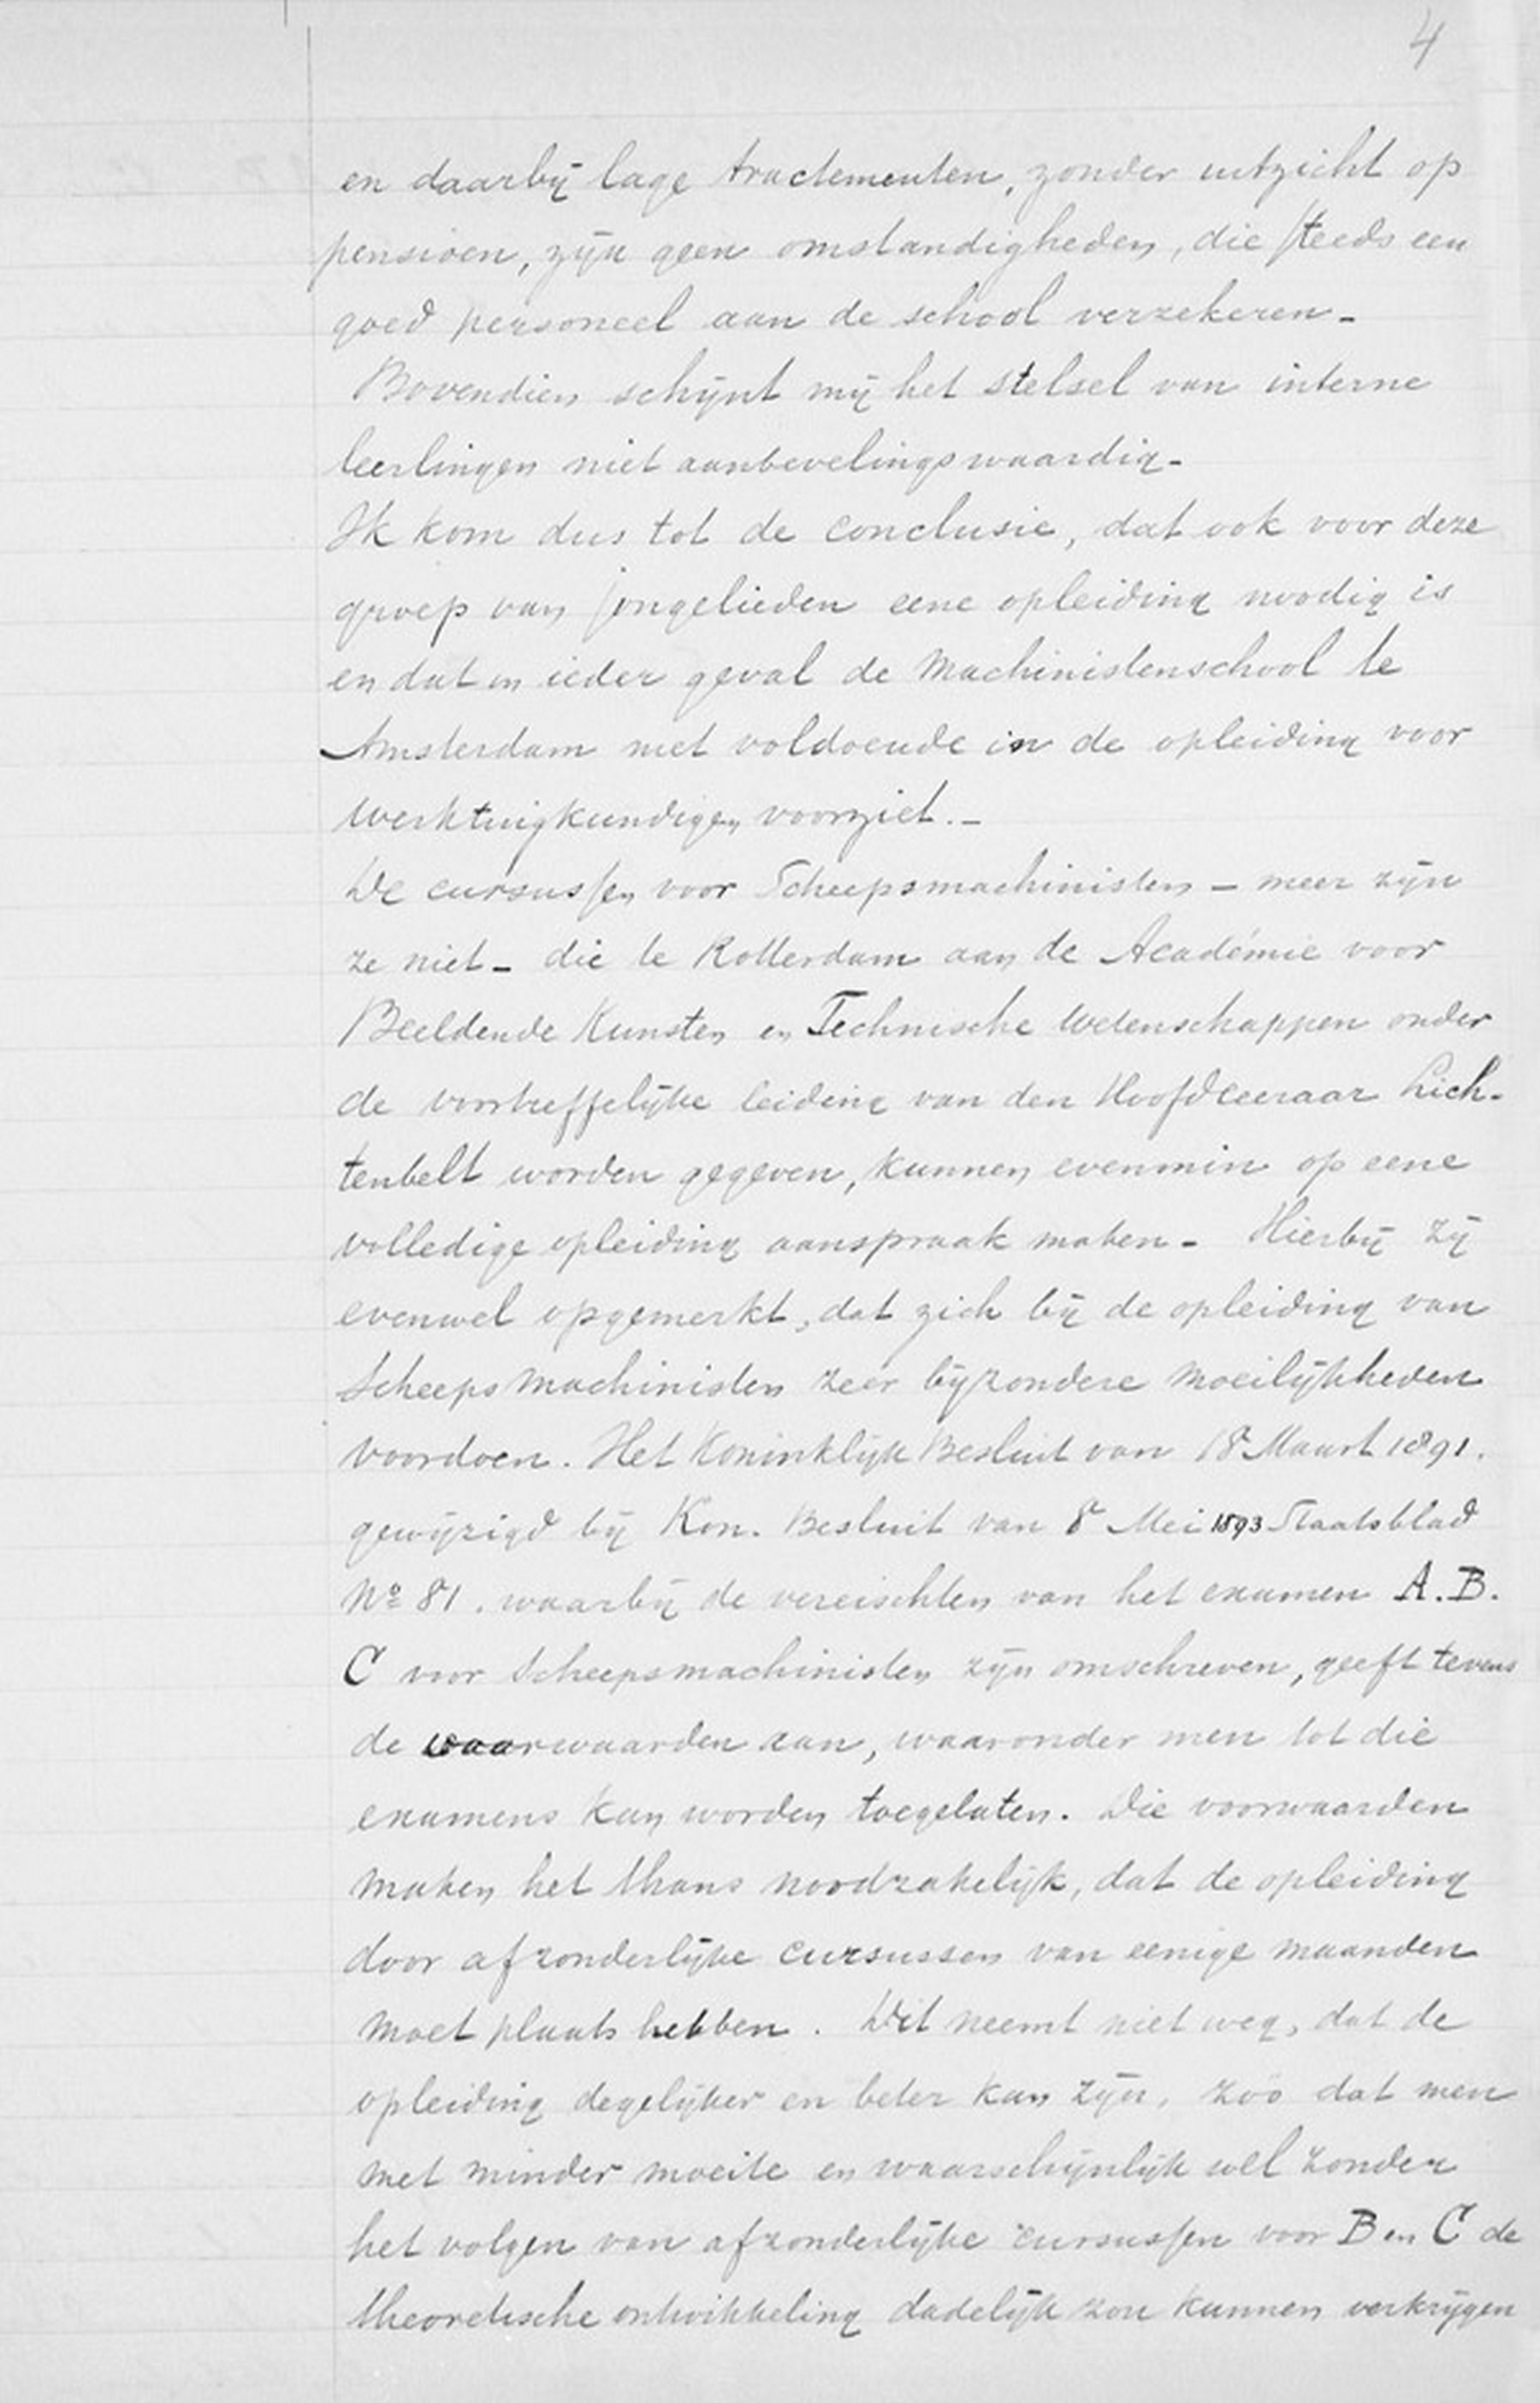 4
en daarbij lage tractementen, zonder uitzicht op
pensioen, zijn geen omstandigheden, die steeds een
goed personeel aan de school verzekeren -
Bovendien schijnt mij het stelsel van interne
leerlingen niet aanbevelingswaardig -
Ik kom dus tot de conclusie, dat ook voor deze
groep van jongelieden eene opleiding noodig is
en dat in ieder geval de Machinistenschool te
Amsterdam niet voldoende in de opleiding voor
Werktuigkundigen voorziet. -
De cursussen voor Scheepsmachinisten - meer zijn
ze niet - die te Rotterdam aan de Académie voor
Beeldende Kunsten en Technische Wetenschappen onder
de voortreffelijke leiding van den Hoofdleeraar Lich-
tenbelt worden gegeven, kunnen evenmin op eene
volledige opleiding aanspraak maken - Hierbij zij
evenwel opgemerkt, dat zich bij de opleiding van
Scheepsmachinisten zeer bijzondere moeilijkheden
voordoen. Het Koninklijk Besluit van 18 Maart 1891.
gewijzigd bij Kon. Besluit van 8 Mei 1893 Staatsblad
No 81. waarbij de vereischten van het examen A. B.
C voor Scheepsmachinisten zijn omschreven, geeft tevens
de voorwaarden aan, waaronder men tot die
examens kan worden toegelaten. Die voorwaarden
maken het thans noodzakelijk, dat de opleiding
door afzonderlijke cursussen van eenige maanden
moet plaats hebben. Dit neemt niet weg, dat de
opleiding degelijker en beter kan zijn, zóó dat men
met minder moeite en waarschijnlijk wel zonder
het volgen van afzonderlijke cursussen voor B en C de
theoretische ontwikkeling dadelijk zou kunnen verkrijgen